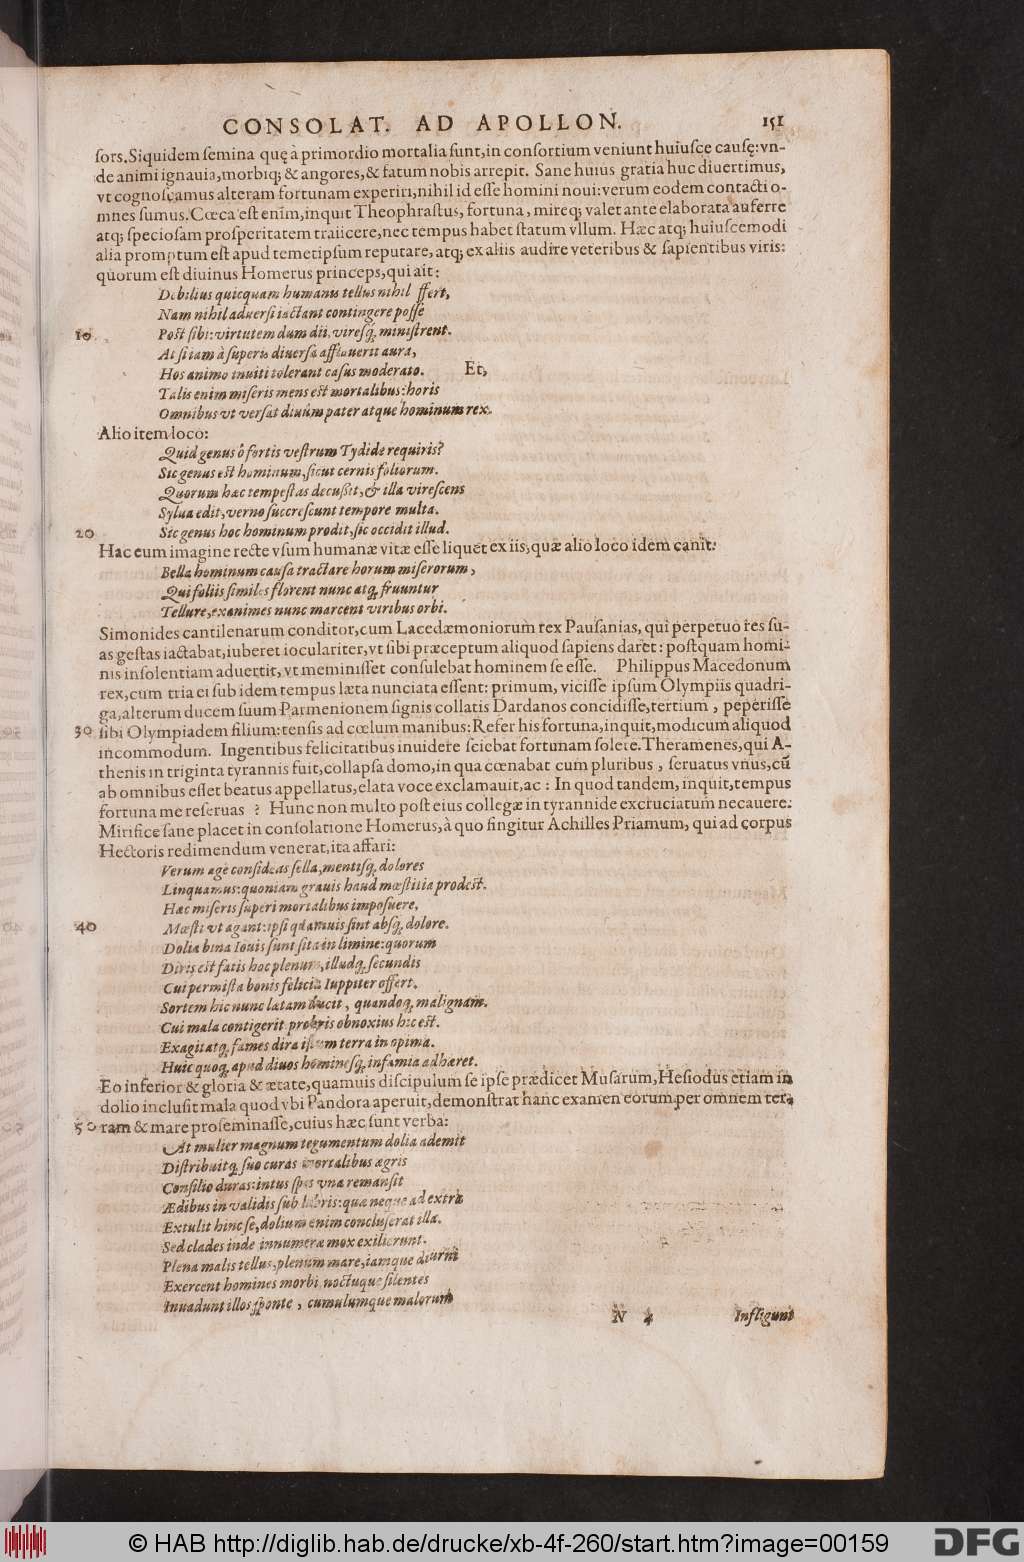 CONSOLAT. AD APOLLON. 151
sors. Siquidem semina quę à primordio mortalia sunt, in consortium veniunt huiusce causę: vn-
de animi ignauia, morbiq; & angores, & fatum nobis arrepit. Sane huius gratia huc diuertimus,
vt cognoscamus alteram fortunam experiri, nihil id esse homini noui: verum eodem contacti o-
mnes sumus. Cœca est enim, inquit Theophrastus, fortuna, mireq; valet ante elaborata auferre
atq; speciosam prosperitatem traiicere, nec tempus habet statum vllum. Hæc atq; huiuscemodi
alia promptum est apud temetipsum reputare, atq; ex aliis audire veteribus & sapientibus viris:
quorum est diuinus Homerus princeps, qui ait:
Debilius quicquam humano tellus nihil ffert,
Nam nihil aduersi iactant contingere posse
10 Post sibi: virtutem dum dii, viresq; ministrent.
At si iam à superis diuersa afflauerit aura,
Hos animo inuiti tolerant casus moderato. Et,
Talis enim miseris mens est mortalibus: horis
Omnibus vt versat diuûm pater atque hominum rex.
Alio item loco:
Quid genus ô fortis vestrum Tydide requiris?
Sic genus est hominum, sicut cernis foliorum.
Quorum hæc tempestas decußit, & illa virescens
Sylua edit, verno succrescunt tempore multa.
20 Sic genus hoc hominum prodit, sic occidit illud.
Hac eum imagine recte vsum humanæ vitæ esse liquet ex iis, quæ alio loco idem canit:
Bella hominum causa tractare horum miserorum,
Qui foliis similes florent nunc atq; fruuntur
Tellure, exanimes nunc marcent viribus orbi.
Simonides cantilenarum conditor, cum Lacedæmoniorum rex Pausanias, qui perpetuo res su-
as gestas iactabat, iuberet ioculariter, vt sibi præceptum aliquod sapiens daret: postquam homi-
nis insolentiam aduertit, vt meminisset consulebat hominem se esse. Philippus Macedonum
rex, cum tria ei sub idem tempus læta nunciata essent: primum, vicisse ipsum Olympiis quadri-
ga, alterum ducem suum Parmenionem signis collatis Dardanos concidisse, tertium, peperisse
30 sibi Olympiadem filium: tensis ad cœlum manibus: Refer his fortuna, inquit, modicum aliquod
incommodum. Ingentibus felicitatibus inuidere sciebat fortunam solere. Theramenes, qui A-
thenis in triginta tyrannis fuit, collapsa domo, in qua cœnabat cum pluribus, seruatus vnus, cū
ab omnibus esset beatus appellatus, elata voce exclamauit, ac: In quod tandem, inquit, tempus
fortuna me reseruas? Hunc non multo post eius collegæ in tyrannide excruciatum necauere.
Mirifice sane placet in consolatione Homerus, à quo fingitur Achilles Priamum, qui ad corpus
Hectoris redimendum venerat, ita affari:
Verum age consideas sella, mentisq; dolores
Linquamus: quoniam grauis haud mœstitia prodest.
Hæc miseris superi mortalibus imposuere,
40 Mœsti vt agant: ipsi quamuis sint absq; dolore.
Dolia bina Iouis sunt sita in limine: quorum
Diris est fatis hoc plenum, illudq; secundis
Cui permista bonis felicia Iuppiter offert.
Sortem hic nunc lætam ducit, quandoq; malignam.
Cui mala contigerit probris obnoxius hic est.
Exagitatq; fames dira illum terra in opima.
Huic quoq; apud diuos hominesq; infamia adhæret.
Eo inferior & gloria & ætate, quamuis discipulum se ipse prædicet Musarum, Hesiodus etiam in
dolio inclusit mala quod vbi Pandora aperuit, demonstrat hanc examen eorum per omnem ter-
50 ram & mare proseminasse, cuius hæc sunt verba:
At mulier magnum tegumentum dolia ademit
Distribuitq; suo curas mortalibus ægris
Consilio duras: intus spes vna remansit
Ædibus in validis sub labris: quæ neque ad extra
Extulit hinc se, dolium enim concluserat illa.
Sed clades inde innumeræ mox exilierunt.
Plena malis tellus, plenum mare, iamque diurni
Exercent homines morbi, noctuque silentes
Inuadunt illos sponte, cumulumque malorum
N 4 Infligunt
© HAB http://diglib.hab.de/drucke/xb-4f-260/start.htm?image=00159
DFG